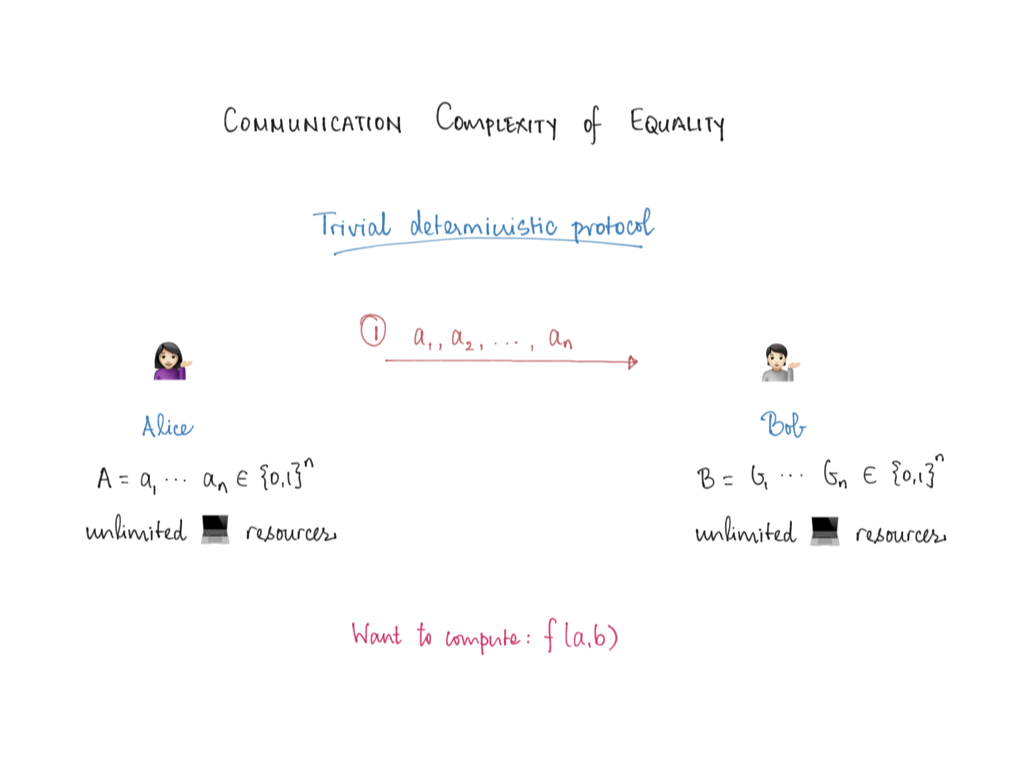 COMMUNICATION COMPLEXITY of EQUALITY
Trivial deterministic protocol
① a₁, a₂, ..., aₙ
Alice
Bob
A = a₁ ... aₙ ∈ {0,1}ⁿ
B = b₁ ... bₙ ∈ {0,1}ⁿ
unlimited 💻 resources
unlimited 💻 resources
Want to compute: f(a,b)